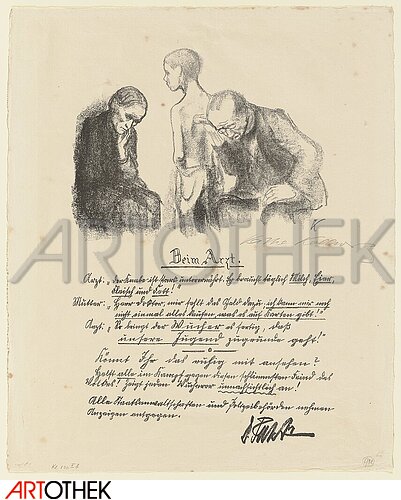 ARTOTHEK
Beim Arzt.
Arzt: „der Knabe ist stark unterernährt. Er braucht täglich Milch, Eier,
Fleisch und Fett!"
Mutter: „Herr Doktor, mir fehlt das Geld dazu, ich kann mir noch
nicht einmal alles kaufen, was es auf Karten gibt!"
Arzt: „So bringt der Wucher es fertig, daß
unsere Jugend zugrunde geht!"
Könnt Ihr das ruhig mit ansehen?
Helft alle im Kampf gegen diesen schlimmsten Feind des
Volkes! Zeigt jeden Wucherer unnachsichtlich an!
Alle Staatsanwaltschaften und Polizeibehörden nehmen
Anzeigen entgegen.
ARTOTHEK